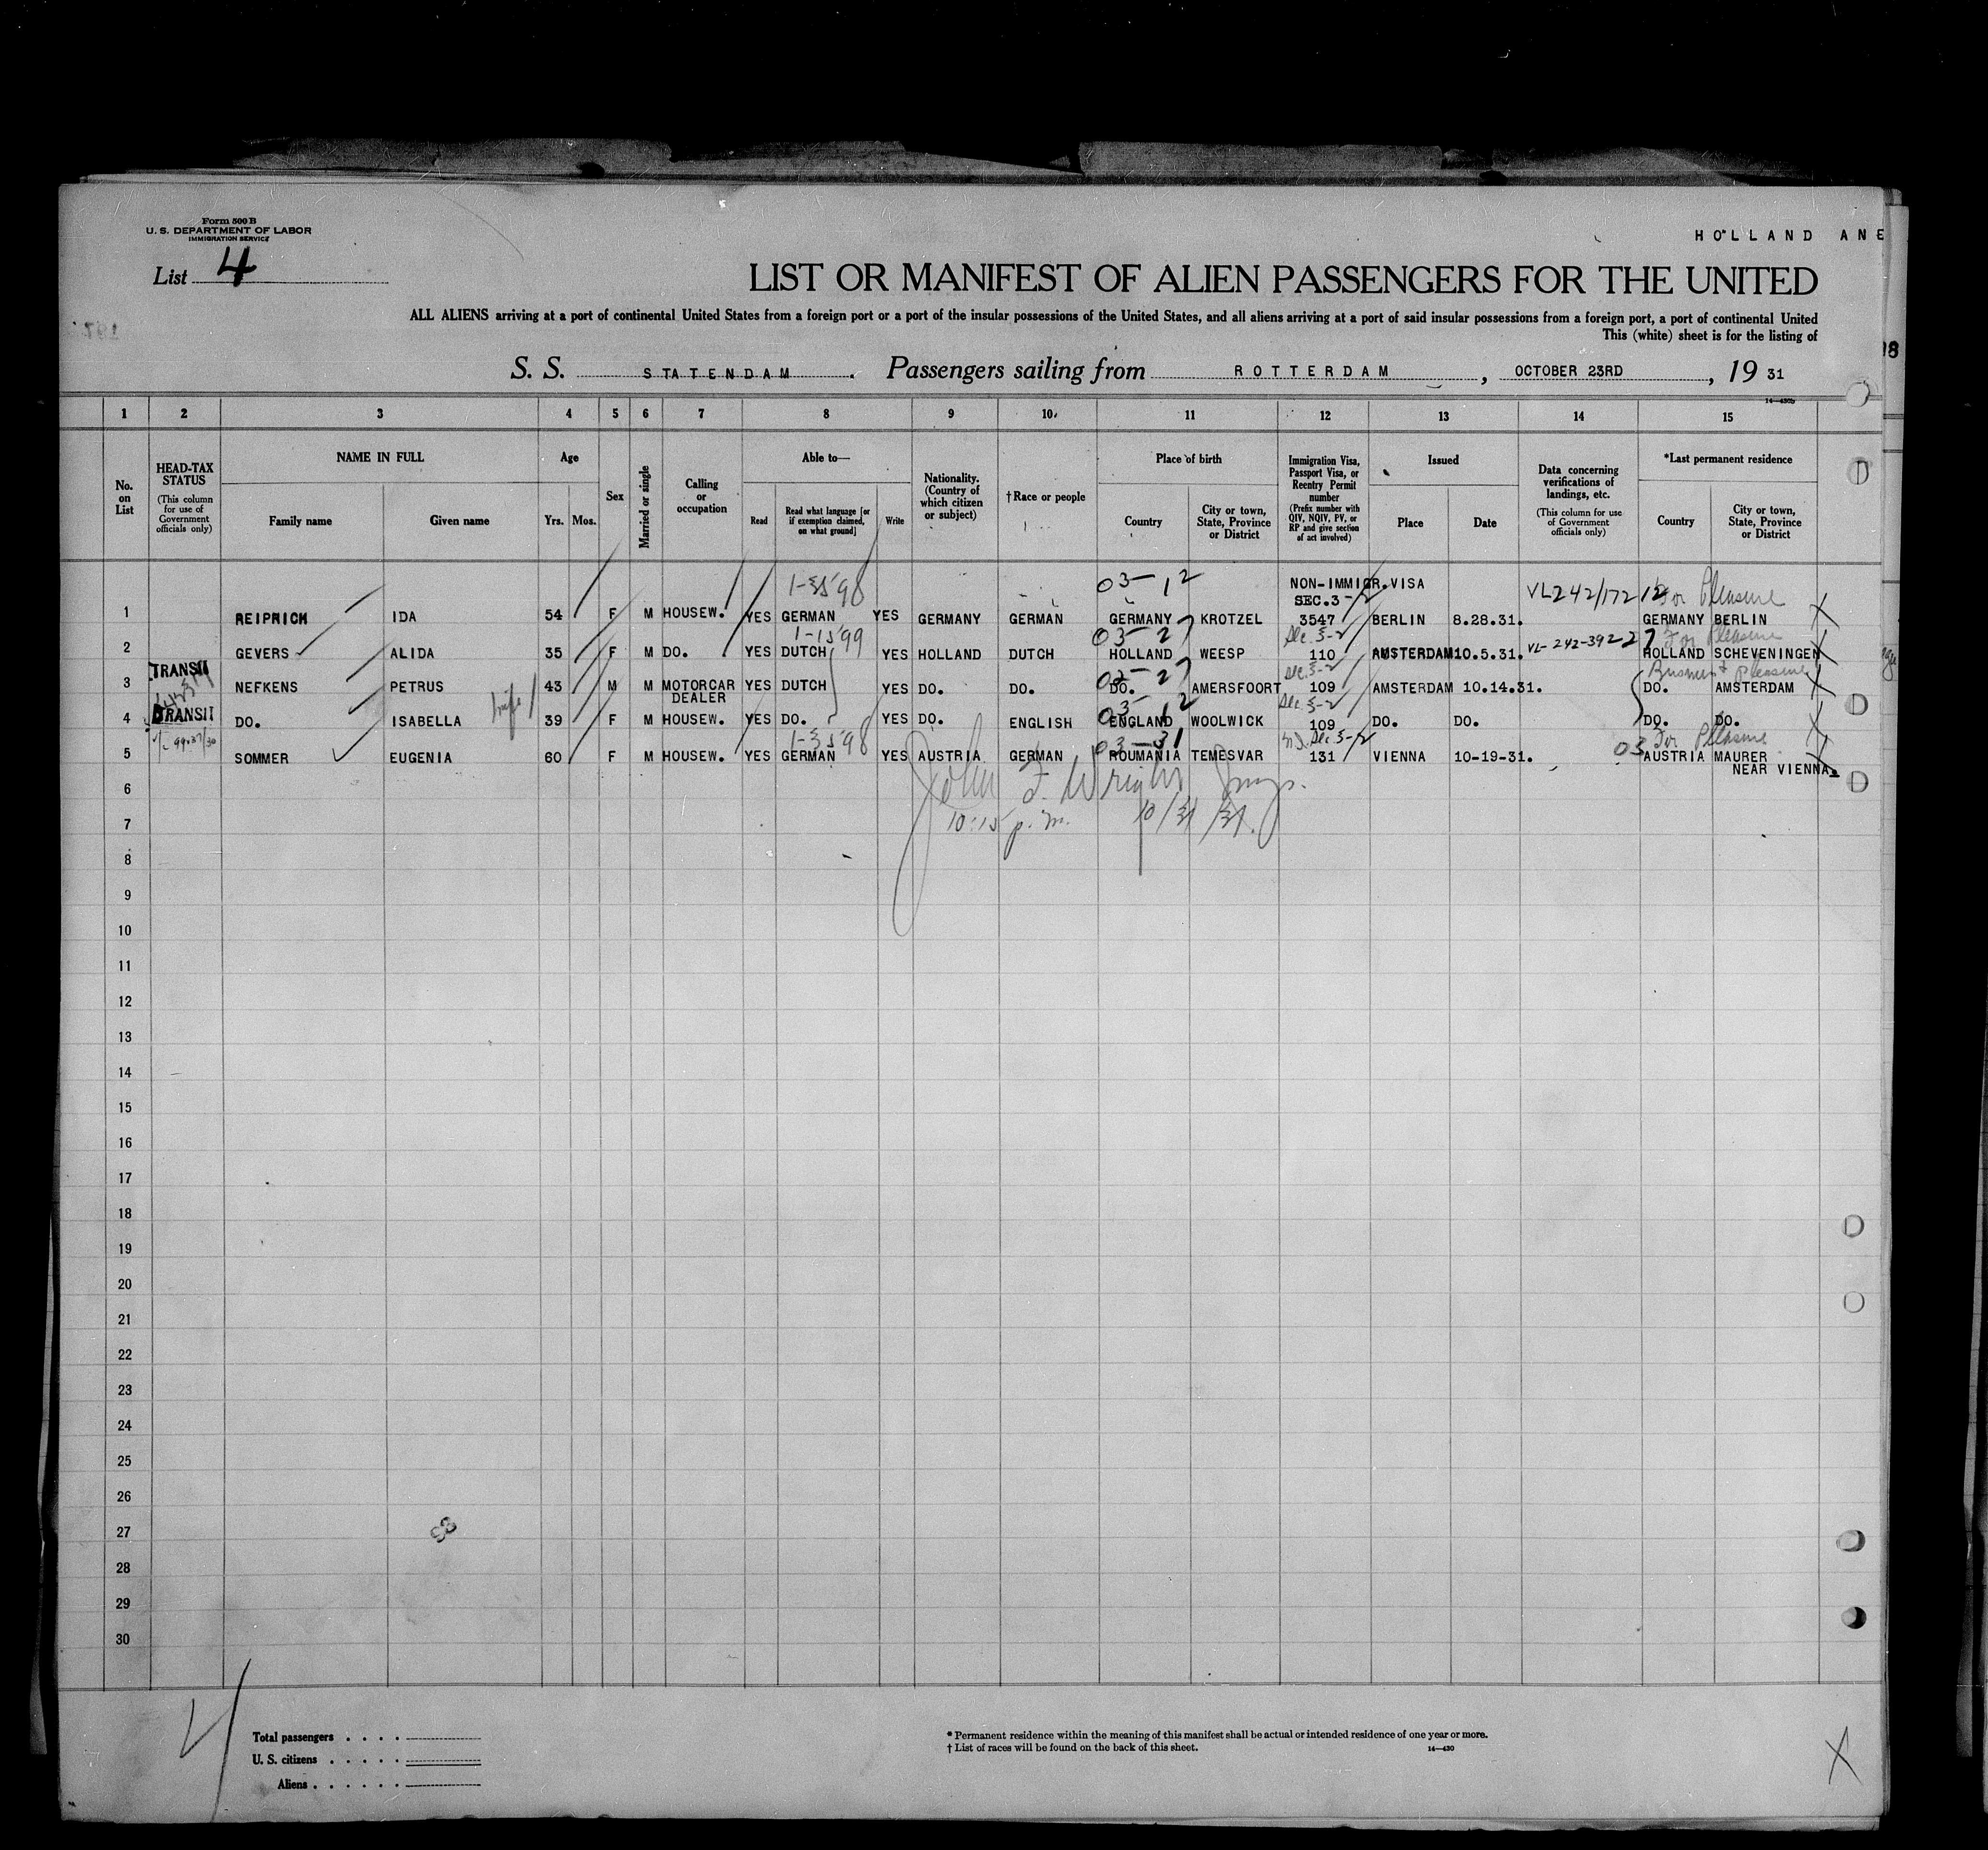 Form 500 B
U. S. DEPARTMENT OF LABOR
IMMIGRATION SERVICE
HOLLAND AME
List 4
LIST OR MANIFEST OF ALIEN PASSENGERS FOR THE UNITED
ALL ALIENS arriving at a port of continental United States from a foreign port or a port of the insular possessions of the United States, and all aliens arriving at a port of said insular possessions from a foreign port, a port of continental United
This (white) sheet is for the listing of
S. S. STATENDAM. Passengers sailing from ROTTERDAM, OCTOBER 23RD, 19 31
1 2 3 4 5 6 7 8 9 10 11 12 13 14 15
No. on List
HEAD-TAX STATUS (This column for use of Government officials only)
NAME IN FULL
Family name Given name
Age
Yrs. Mos.
Sex
Married or single
Calling or occupation
Able to—
Read
Read what language [or if exemption claimed, on what ground]
Write
Nationality. (Country of which citizen or subject)
† Race or people
Place of birth
Country
City or town, State, Province or District
Immigration Visa, Passport Visa, or Reentry Permit number (Prefix number with QIV, NQIV, PV, or RP and give section of act involved)
Issued
Place Date
Data concerning verifications of landings, etc. (This column for use of Government officials only)
*Last permanent residence
Country
City or town, State, Province or District
03-12 NON-IMMIGR.VISA
SEC.3-2 VL242/172 12 For Pleasure
1 REIPRICH IDA 54 F M HOUSEW. YES GERMAN YES GERMANY GERMAN GERMANY KROTZEL 3547 BERLIN 8.28.31. GERMANY BERLIN
1-15'99 03-27 Sec. 3-2 For Pleasure
2 GEVERS ALIDA 35 F M DO. YES DUTCH YES HOLLAND DUTCH HOLLAND WEESP 110 AMSTERDAM 10.5.31. HOLLAND SCHEVENINGEN
TRANSIT Sec. 3-2 Business & Pleasure
3 NEFKENS PETRUS 43 M M MOTORCAR DEALER YES DUTCH YES DO. DO. DO. AMERSFOORT 109 AMSTERDAM 10.14.31. DO. AMSTERDAM
TRANSIT wife 03-12 Sec. 3-2
4 DO. ISABELLA 39 F M HOUSEW. YES DO. YES DO. ENGLISH ENGLAND WOOLWICK 109 DO. DO. DO. DO.
03-31 Sec. 3-2 03 For Pleasure
5 SOMMER EUGENIA 60 F M HOUSEW. YES GERMAN YES AUSTRIA GERMAN ROUMANIA TEMESVAR 131 VIENNA 10-19-31. AUSTRIA MAURER
NEAR VIENNA.
6
John F. Wright Insp.
7
10:15 p.m. 10/31/31.
8
9
10
11
12
13
14
15
16
17
18
19
20
21
22
23
24
25
26
27
28
29
30
Total passengers
U. S. citizens
Aliens
* Permanent residence within the meaning of this manifest shall be actual or intended residence of one year or more.
† List of races will be found on the back of this sheet.
14—430